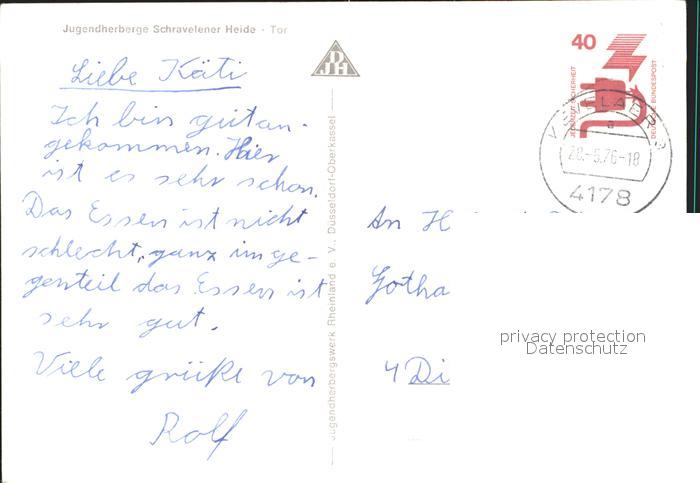 Jugendherberge Schravelener Heide · Tor
Liebe Käti
Ich bin gut an-
gekommen. Hier
ist es sehr schön.
Das Essen ist nicht
schlecht, ganz im ge-
genteil das Essen ist
sehr gut.
Viele grüße von
Rolf
DJH
Jugendherbergswerk Rheinland e. V., Düsseldorf-Oberkassel
40
JEDERZEIT SICHERHEIT
DEUTSCHE BUNDESPOST
KEVELAER 2
a
28.-5.76-18
4178
An H
Gotha
4 Di
privacy protection
Datenschutz